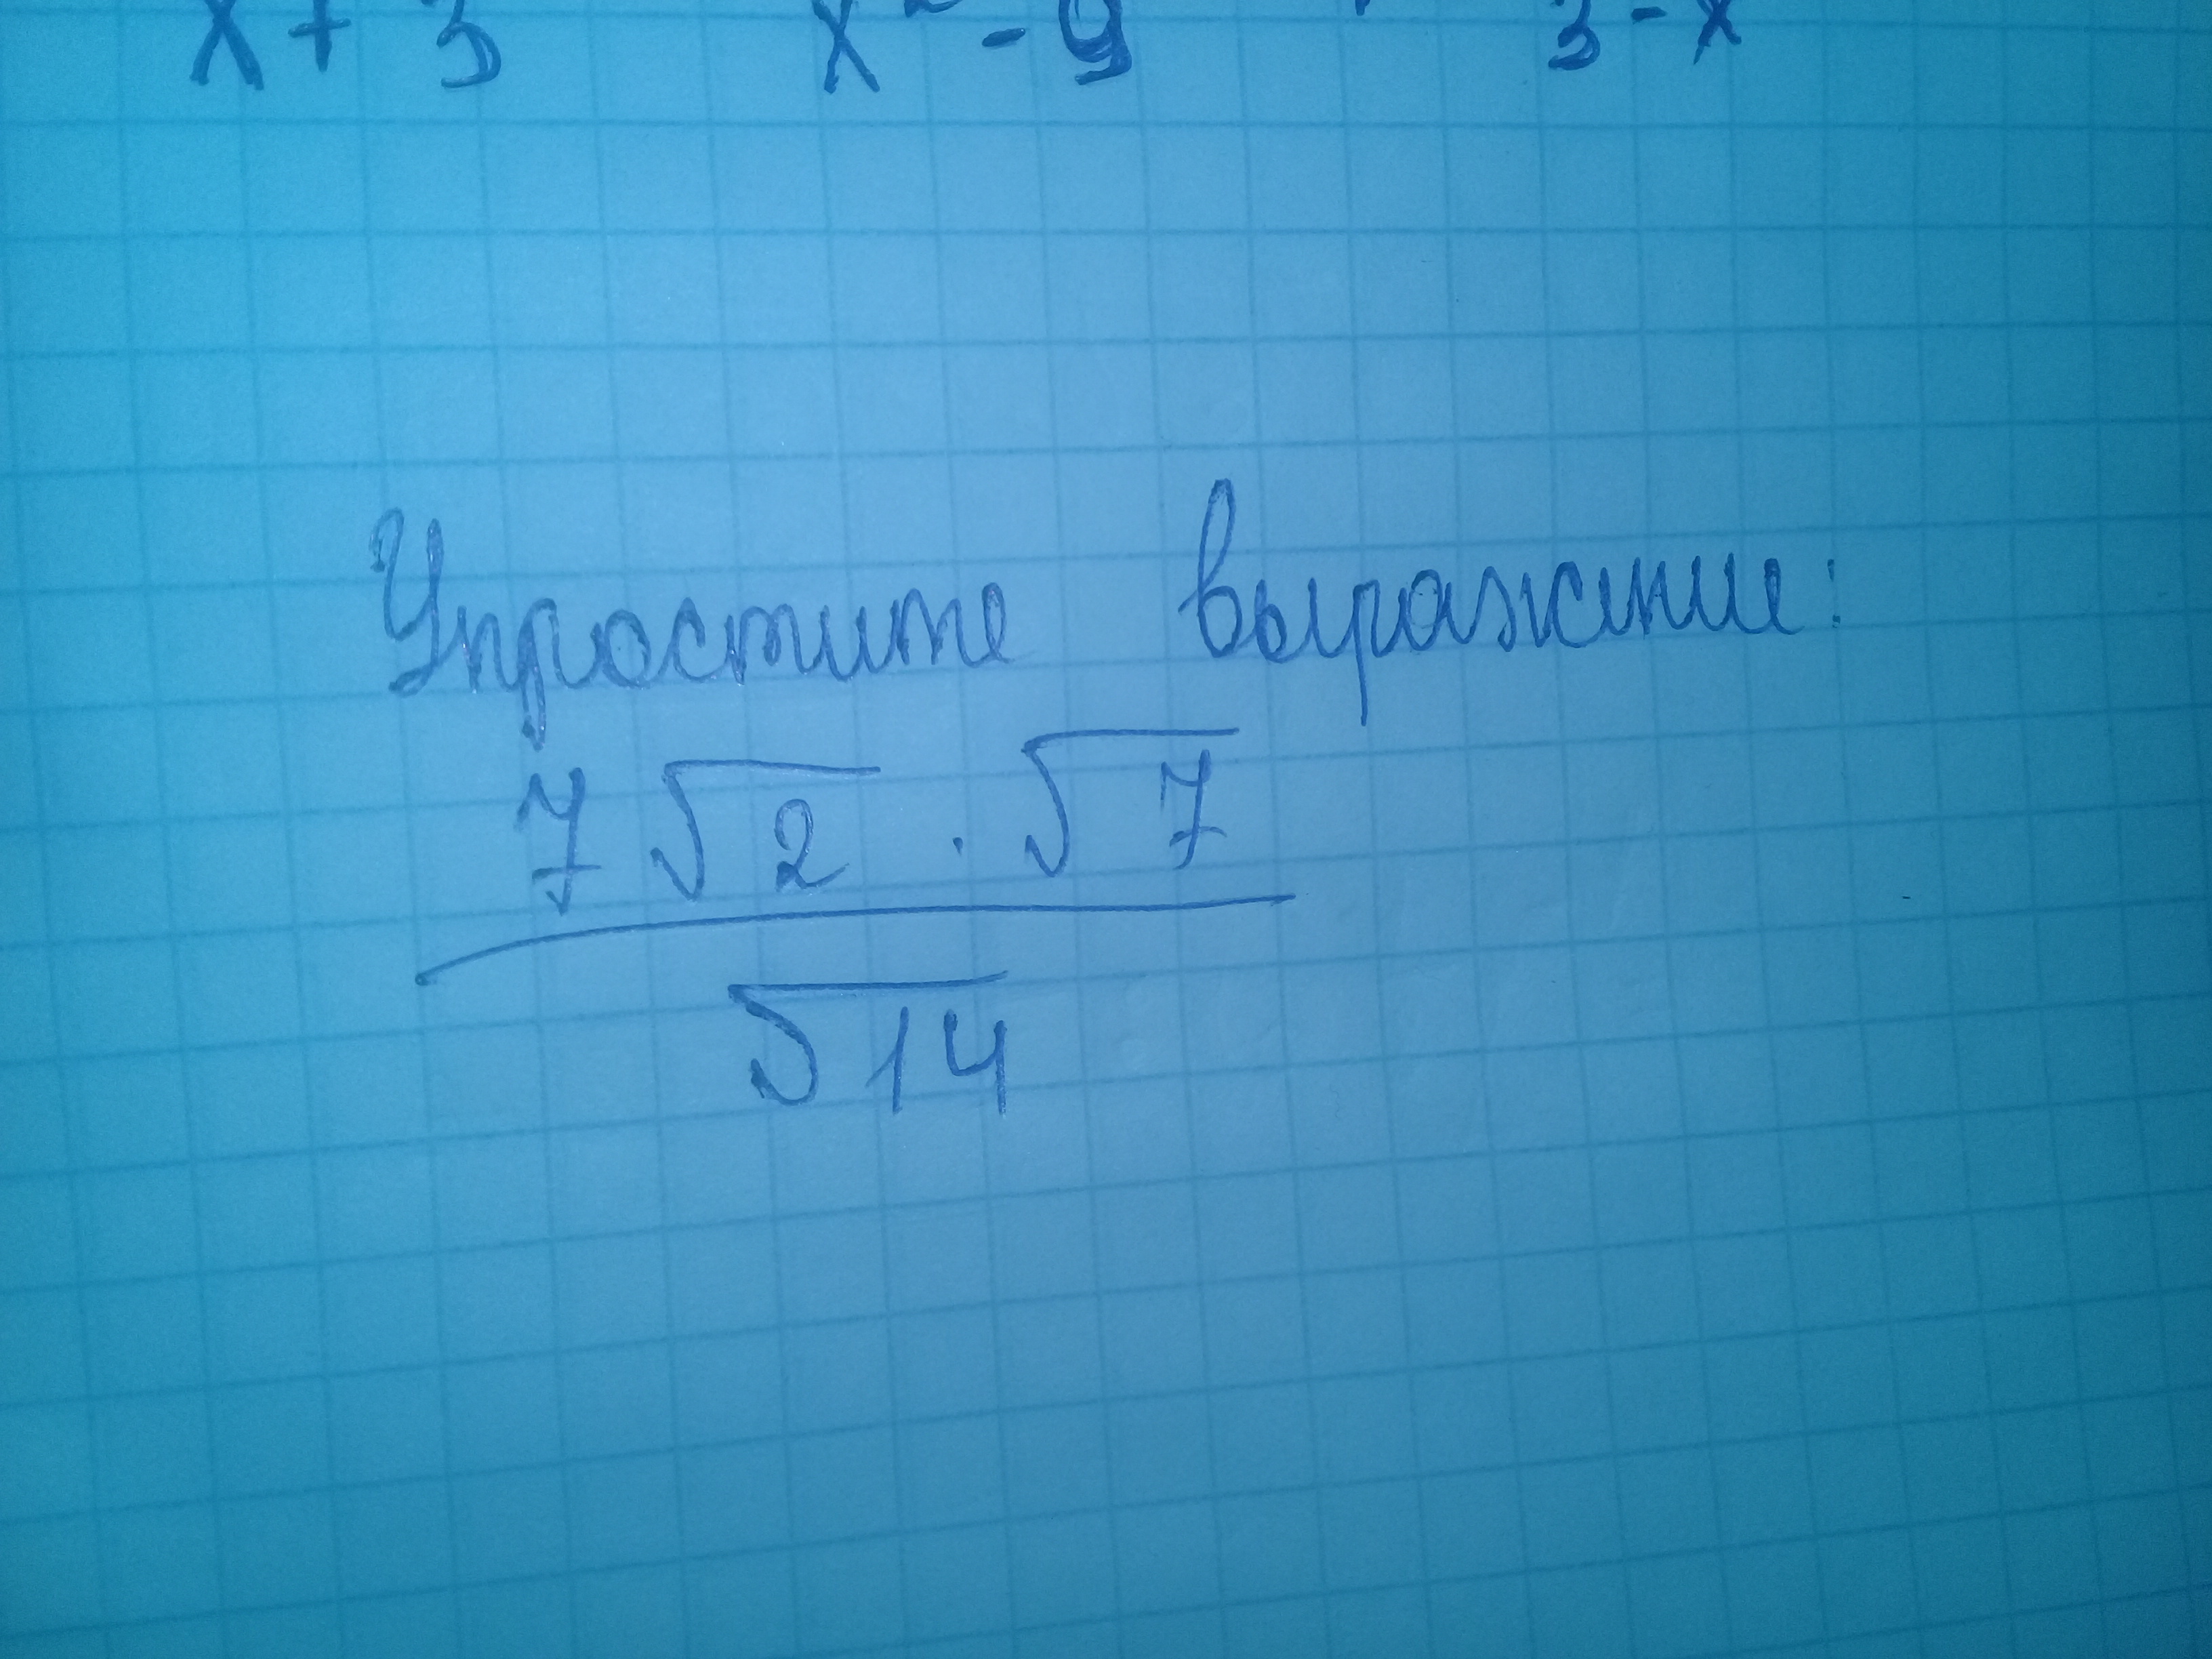 x + 3 x² - 9 3 - x
Упростите выражение:
7 √2 · √7
√14